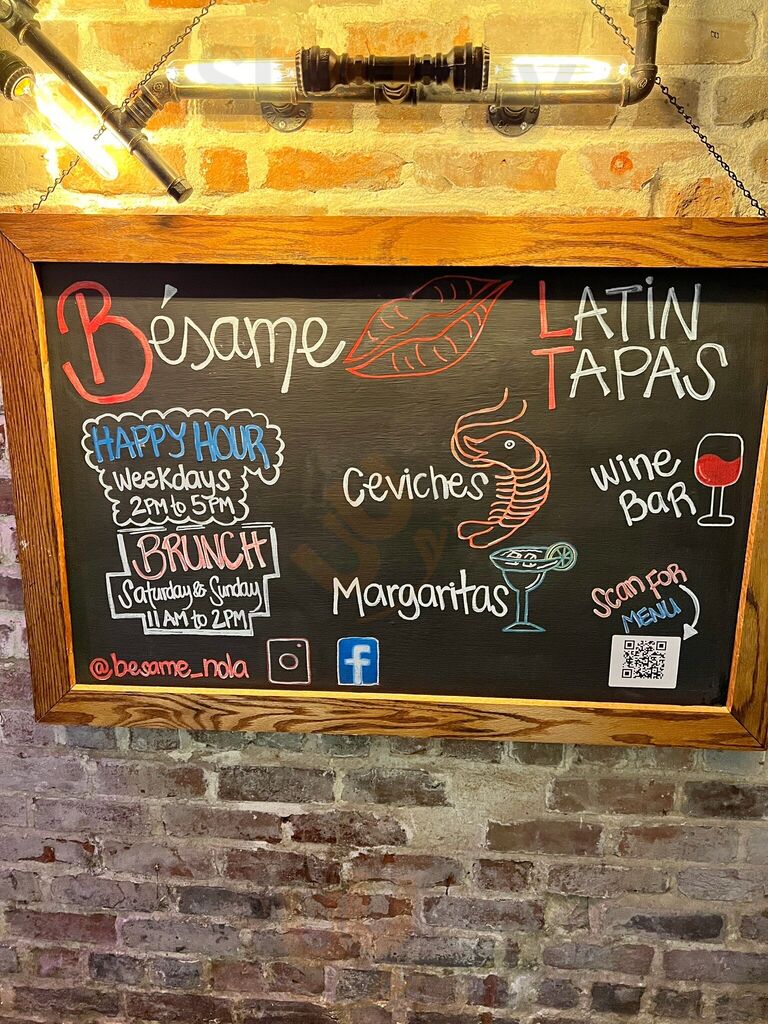 Bésame
LATIN
TAPAS
HAPPY HOUR
Weekdays
2PM to 5PM
BRUNCH
Saturday & Sunday
11 AM to 2PM
Ceviches
Margaritas
Wine
BAR
SCAN FOR
MENU
@besame_nola
f